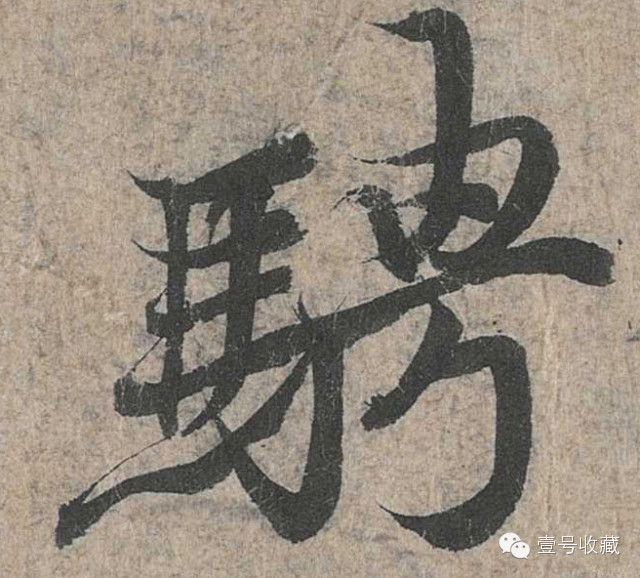 騁
壹号收藏